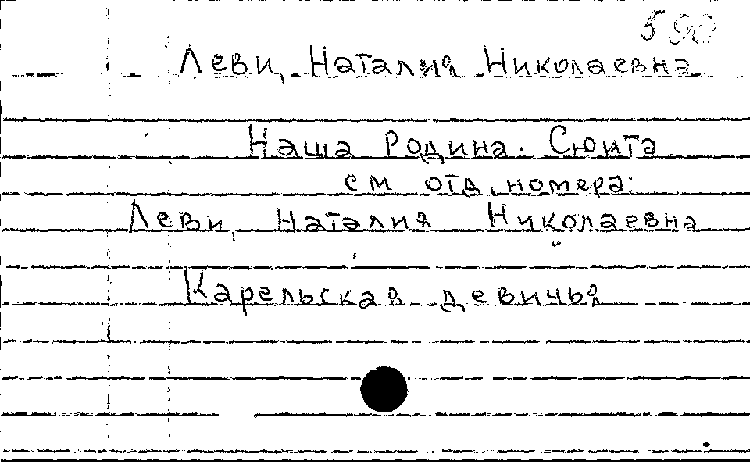 590
Леви, Наталия Николаевна
Наша Родина. Сюита
см отд. номера:
Леви, Наталия Николаевна
Карельская девичья